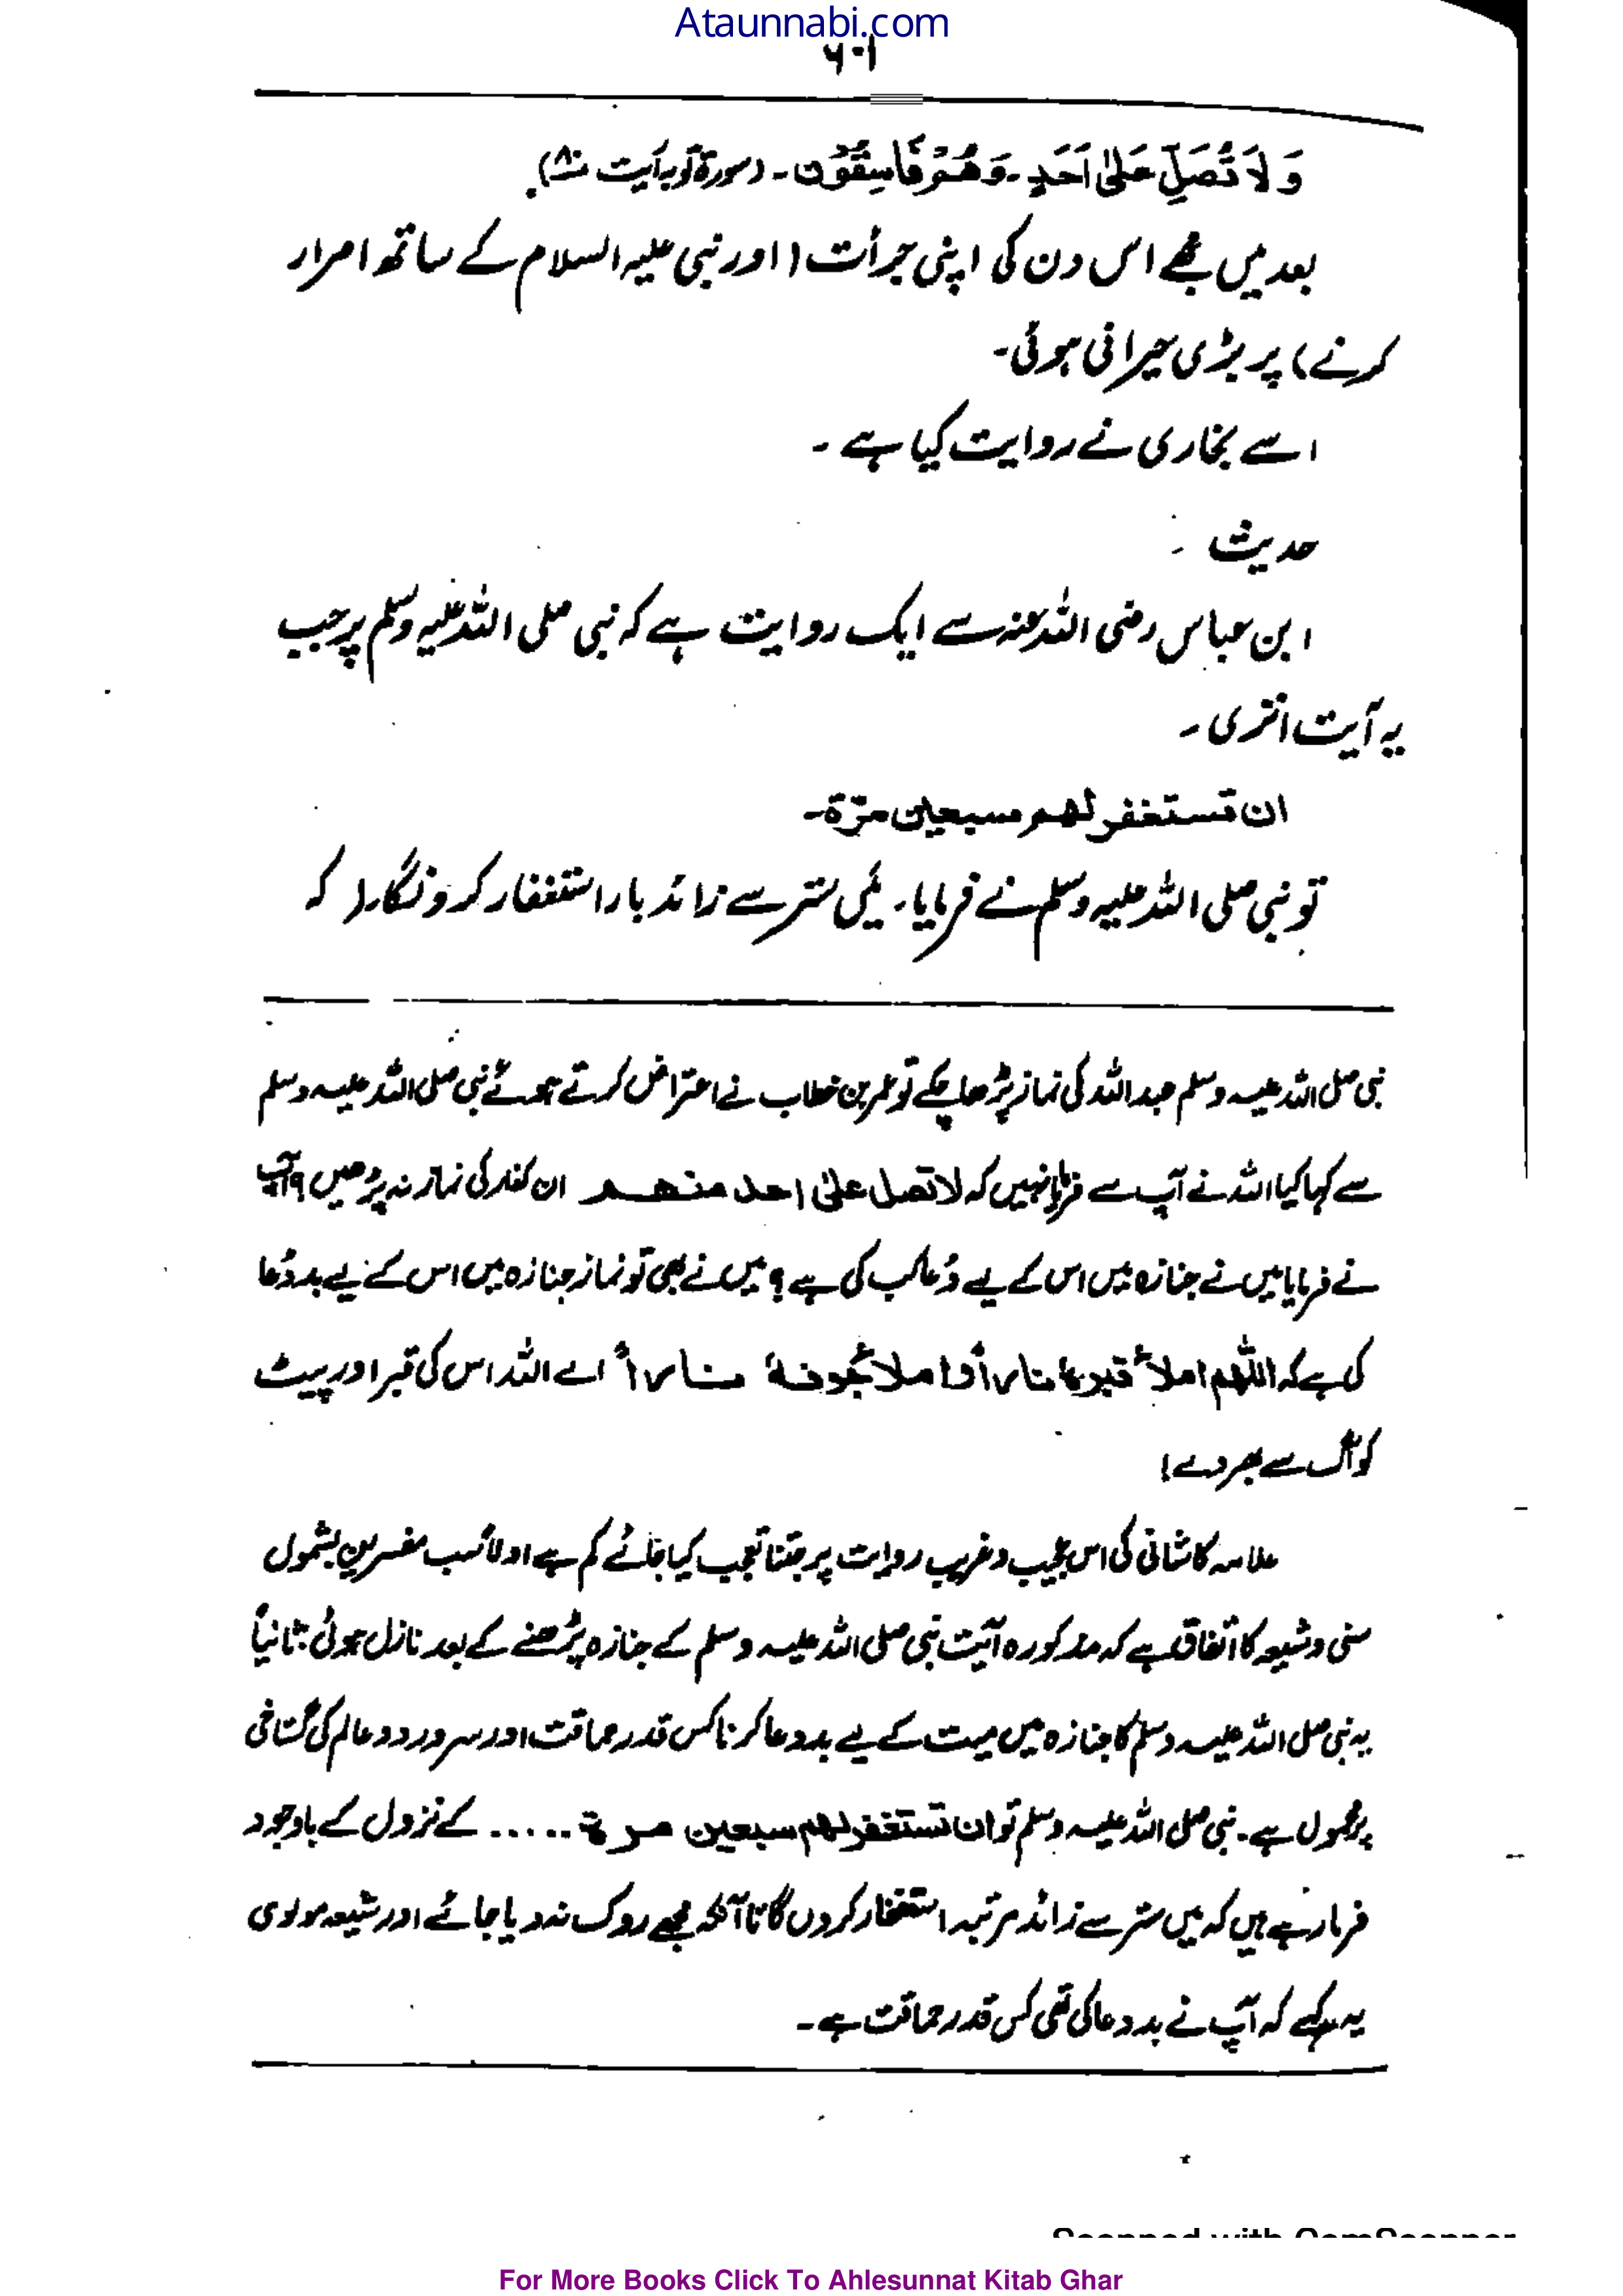 Ataunnabi.com
۶۰۱
وَ لَا تُصَلِّ عَلٰى اَحَدٍ ۔ وَهُمْ فَاسِقُوْن ۔ (سورۃ توبہ آیت
بعد میں مجھے اس دن کی اپنی جرأت (اور نبی علیہ السلام کے ساتھ اصرار
کرنے) پر بڑی حیرانی ہوئی۔
اسے بخاری نے روایت کیا ہے ۔
حدیث ۔
ابن عباس رضی اللہ عنہ سے ایک روایت ہے کہ نبی صلی اللہ علیہ وسلم پر جب
یہ آیت اتری ۔
ان تستغفر لهم سبعين مرّة۔
تو نبی صلی اللہ علیہ وسلم نے فرمایا۔ میں ستر سے زائد بار استغفار کرونگا۔ (کہ
نبی صلی اللہ علیہ وسلم عبداللہ کی نماز پڑھا چکے تو عمر بن خطاب نے اعتراض کرتے ہوئے نبی صلی اللہ علیہ وسلم
سے کہا کیا اللہ نے آپ سے فرمایا نہیں کہ لا تصل علىٰ احد منهم ان کفار کی نماز نہ پڑھیں؟ آپ
نے فرمایا میں نے جنازہ میں اس کے لیے دُعا کب کی ہے؟ میں نے بھی تو نماز جنازہ میں اس کے لیے بددُعا
کی ہے کہ اللهم املأ قبرہا نارًا واملأ جوفهٗ نارًا اے اللہ اس کی قبر اور پیٹ
کو آگ سے بھر دے!
علامہ کاشانی کی اس عجیب و غریب روایت پر جتنا تعجب کیا جائے کم ہے اولاً سب مفسرین بشمول
سنی و شیعہ کا اتفاق ہے کہ مذکورہ آیت نبی صلی اللہ علیہ وسلم کے جنازہ پڑھنے کے بعد نازل ہوئی: ثانیاً
یہ نبی صلی اللہ علیہ وسلم کا جنازہ میں میت کے لیے بددعا کرنا کس قدر حماقت اور سرور دو عالم کی گستاخی
پر محمول ہے۔ نبی صلی اللہ علیہ وسلم تو ان تستغفر لهم سبعين مرة ..... کے نزول کے باوجود
فرما رہے ہیں کہ میں ستر سے زائد مرتبہ استغفار کروں گا تا آنکہ مجھے روک نہ دیا جائے اور شیعہ مولوی
یہ کہے کہ آپ نے بددعا کی تھی کس قدر حماقت ہے۔
Scanned with CamScanner
For More Books Click To Ahlesunnat Kitab Ghar